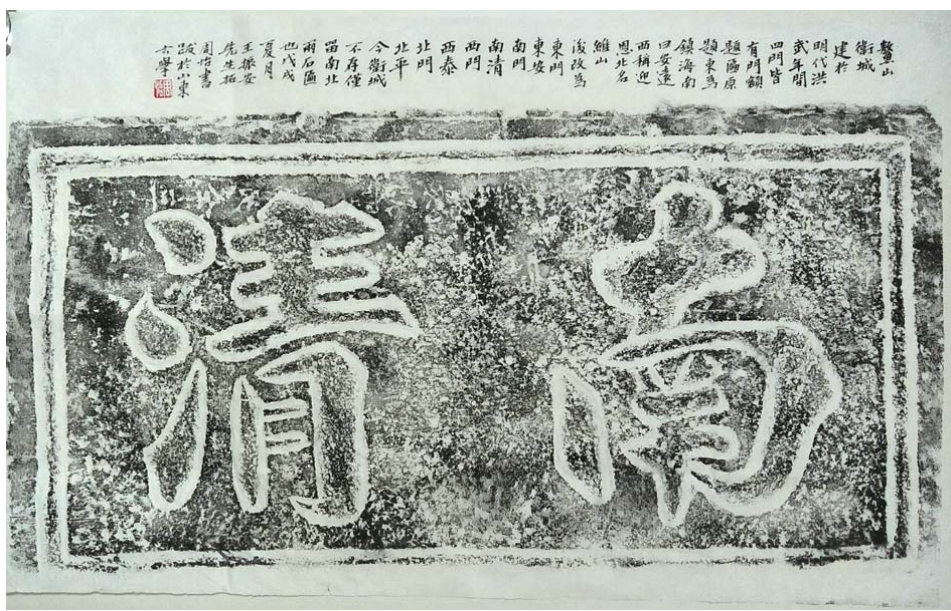 鰲山
衛城
建於
明代洪
武年間
四門皆
有門額
題匾原
題東爲
鎮海南
曰安遠
西稱迎
恩北名
維山
後改爲
東門
東安
南門
南清
西門
西泰
北門
北平
今衛城
不存僅
留南北
兩石匾
也戊戌
夏月
王振安
先生拓
周怡書
跋於山東
古學
南清